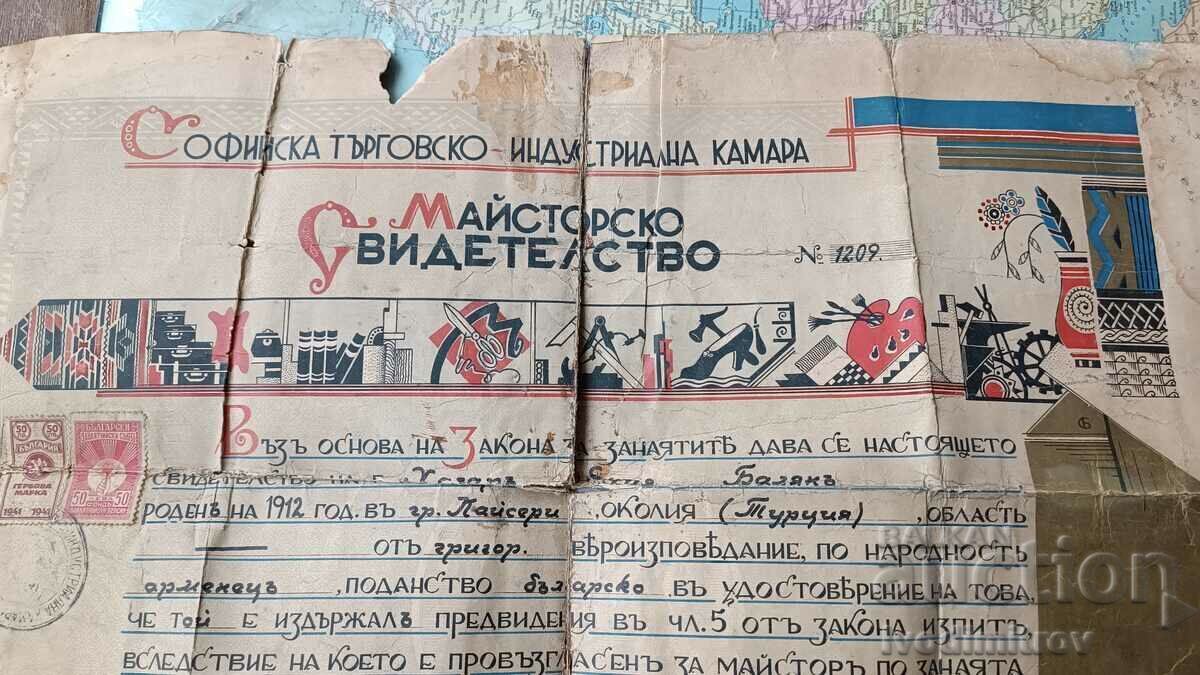 Софийска търговско-индустриална камара
Майсторско
свидетелство
№ 1209.
Възъ основа на Закона за занаятите дава се настоящето
свидетелство на г. Балянъ
роденъ на 1912 год. въ гр. Кайсери, околия (Турция), область
— отъ григор. вѣроизповѣдание, по народность
арменецъ, поданство българско въ удостовѣрение на това,
че той е издържалъ предвидения въ чл. 5 отъ закона изпитъ,
вследствие на което е провъзгласенъ за майсторъ по занаята
50 50
България
Гербова
марка
1941 1941
Български
50 лева 50
BALKAN
auction
ivodimitrov